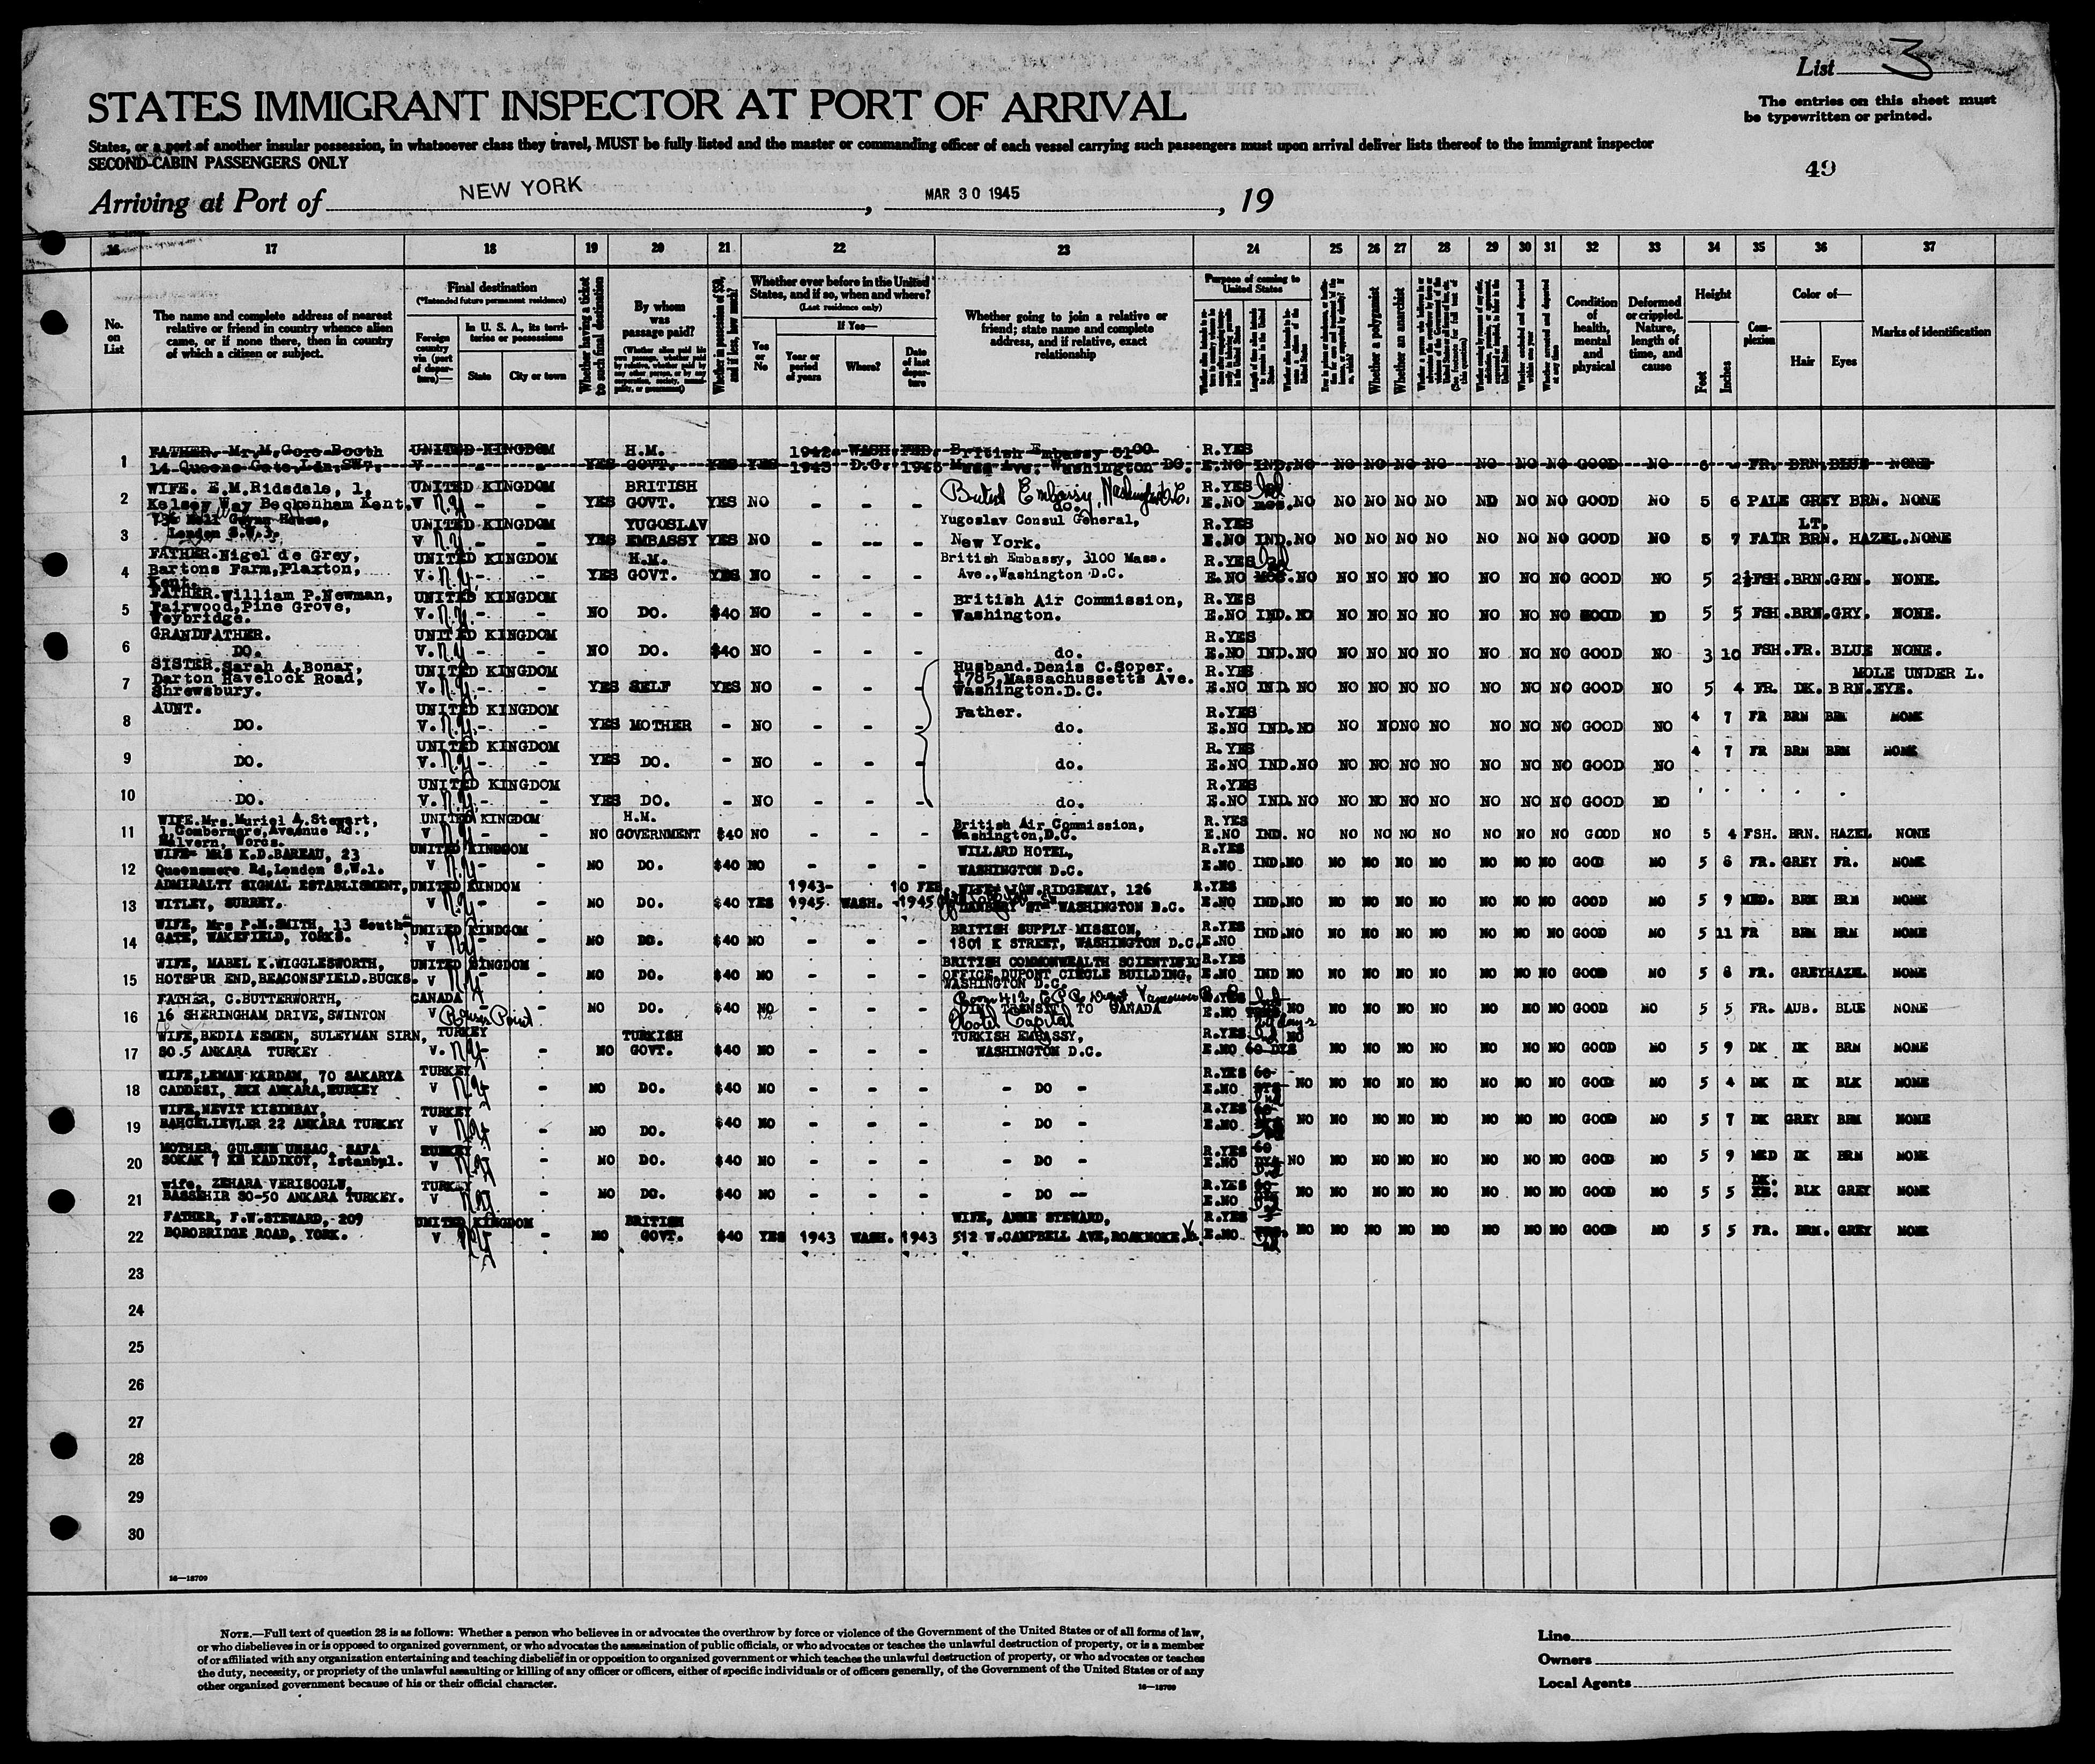 List 3
The entries on this sheet must
be typewritten or printed.
STATES IMMIGRANT INSPECTOR AT PORT OF ARRIVAL
States, or a port of another insular possession, in whatsoever class they travel, MUST be fully listed and the master or commanding officer of each vessel carrying such passengers must upon arrival deliver lists thereof to the immigrant inspector
SECOND-CABIN PASSENGERS ONLY
49
Arriving at Port of NEW YORK, MAR 30 1945, 19
16 17 18 19 20 21 22 23 24 25 26 27 28 29 30 31 32 33 34 35 36 37
No. on List
The name and complete address of nearest relative or friend in country whence alien came, or if none there, then in country of which a citizen or subject.
Final destination
(*Intended future permanent residence)
Foreign country via (port of departure)—
In U. S. A., its territories or possessions
State
City or town
Whether having a ticket to such final destination
By whom was passage paid?
(Whether alien paid his own passage, whether paid by relative, whether paid by any other person, or by any corporation, society, municipality, or government)
Whether in possession of $50, and if less, how much?
Whether ever before in the United States, and if so, when and where?
(Last residence only)
Yes or No
If Yes—
Year or period of years
Where?
Date of last departure
Whether going to join a relative or friend; state name and complete address, and if relative, exact relationship
Purpose of coming to United States
Whether a polygamist
Whether an anarchist
Whether excluded and deported within one year
Whether arrested and deported at any time
Condition of health, mental and physical
Deformed or crippled. Nature, length of time, and cause
Height
Feet
Inches
Complexion
Color of—
Hair
Eyes
Marks of identification
1 FATHER. Mr. M. Gore Booth UNITED KINGDOM H.M. 1942- WASH. FEB. British Embassy 3100 R.YES
14 Queens Gate, Ldn. SW7. V - - YES GOVT. YES YES 1943 D.C. 1943 Mass Ave. Washington DC. E.NO IND. NO NO NO NO NO NO NO NO GOOD NO 6 - FR. BRN. BLUE NONE
2 WIFE. E.M.Ridsdale, 1, UNITED KINGDOM BRITISH British Embassy, Washington D.C. R.YES Ind
Kelsey Way Beckenham Kent. V N.Y. - YES GOVT. YES NO - - - do. E.NO mos. NO NO NO NO NO NO NO NO GOOD NO 5 6 PALE GREY BRN. NONE
3 Nell Gwynn House, UNITED KINGDOM YUGOSLAV Yugoslav Consul General, R.YES LT.
London S.W.3. V N.Y. - YES EMBASSY YES NO - -- - New York. E.NO IND. NO NO NO NO NO NO NO NO GOOD NO 5 7 FAIR BRN. HAZEL. NONE
4 FATHER. Nigel de Grey, UNITED KINGDOM H.M. British Embassy, 3100 Mass. R.YES Ind
Bartons Farm, Plaxton, V. N.Y. - - YES GOVT. YES NO - - - Ave., Washington D.C. E.NO MOS. NO NO NO NO NO NO NO NO GOOD NO 5 2½ FSH. BRN. GRN. NONE.
Kent.
5 FATHER. William P. Newman, UNITED KINGDOM British Air Commission, R.YES
Fairwood, Pine Grove, V. N.Y. - - NO DO. $40 NO - - - Washington. E.NO IND. NO NO NO NO NO NO NO NO GOOD NO 5 5 FSH. BRN. GRY. NONE.
Weybridge.
6 GRANDFATHER. UNITED KINGDOM R.YES
DO. V. N.Y. - - NO DO. $40 NO - - - do. E.NO IND. NO NO NO NO NO NO NO NO GOOD NO 3 10 FSH. FR. BLUE NONE.
7 SISTER. Sarah A. Bonar, UNITED KINGDOM Husband. Denis C. Soper. R.YES MOLE UNDER L.
Darton Havelock Road, V. N.Y. - - YES SELF YES NO - - - 1785, Massachussetts Ave. E.NO IND. NO NO NO NO NO NO NO NO GOOD NO 5 4 FR. DK. BRN. EYE.
Shrewsbury. Washington. D.C.
8 AUNT. UNITED KINGDOM Father. R.YES
DO. V. N.Y. - - YES MOTHER - NO - - - do. E.NO IND. NO NO NO NO NO NO NO NO GOOD NO 4 7 FR BRN BRN NONE
9 UNITED KINGDOM R.YES
DO. V. N.Y. - - YES DO. - NO - - - do. E.NO IND. NO NO NO NO NO NO NO NO GOOD NO 4 7 FR BRN BRN NONE
10 UNITED KINGDOM R.YES
DO. V. N.Y. - - YES DO. - NO - - - do. E.NO IND. NO NO NO NO NO NO NO NO GOOD NO
11 WIFE. Mrs. Muriel A. Stewart, UNITED KINGDOM H.M. British Air Commission, R.YES
1, Combermere, Aveanue Rd., V N.Y. - NO GOVERNMENT $40 NO - - - Washington, D.C. E.NO IND. NO NO NO NO NO NO NO NO GOOD NO 5 4 FSH. BRN. HAZEL NONE
Malvern, Worcs.
12 WIFE- MRS K.D. BAREAU, 23 UNITED KINGDOM WILLARD HOTEL, R.YES
Queensmere Rd, London S.W.1. V N.Y. - NO DO. $40 NO - - - WASHINGTON D.C. E.NO IND. NO NO NO NO NO NO NO NO GOOD NO 5 8 FR. GREY FR. NONE
13 ADMIRALTY SIGNAL ESTABLISMENT, UNITED KINDOM 1943- 10 FEB. WIFE: W. RIDGEWAY, 126 R.YES
WITLEY, SURREY. V N.Y. - NO DO. $40 YES 1945 WASH. 1945 DANBURY ST. WASHINGTON D.C. E.NO IND. NO NO NO NO NO NO NO NO GOOD NO 5 9 MED. BRN BRN NONE
14 WIFE, Mrs P.M. SMITH, 13 South- UNITED KINDGOM BRITISH SUPPLY MISSION, R.YES
GATE, WAKEFIELD, YORKS. V N.Y. - NO DO. $40 NO - - - 1801 K STREET, WASHINGTON D.C. E.NO IND. NO NO NO NO NO NO NO NO GOOD NO 5 11 FR BRN BRN NONE
15 WIFE, MABEL K. WIGGLESWORTH, UNITED KINGDOM BRITISH COMMONWEALTH SCIENTIFIC R.YES
HOTSPUR END, BEACONSFIELD. BUCKS. V N.Y. - NO DO. $40 NO - - - OFFICE, DUPONT CIRCLE BUILDING, E.NO IND NO NO NO NO NO NO NO NO GOOD NO 5 8 FR. GREY HAZEL NONE
WASHINGTON D.C.
16 FATHER, C. BUTTERWORTH, CANADA Room 412, C.P.R. Vancouver B.C. R.YES
16 SHERINGHAM DRIVE, SWINTON V Rouses Point NO DO. $40 NO - - - IN TRANSIT TO CANADA E.NO TRNS. NO NO NO NO NO NO NO NO GOOD NO 5 5 FR. AUB. BLUE NONE
Hotel Capitol days
17 WIFE, BEDIA ESMEN, SULEYMAN SIRN, TURKEY TURKISH TURKISH EMBASSY, R.YES Ind NO
80.5 ANKARA TURKEY V. N.Y. - NO GOVT. $40 NO - - - WASHINGTON D.C. E.NO 60 DYS NO NO NO NO NO NO NO GOOD NO 5 9 DK DK BRN NONE
18 WIFE, LEMAN KARDAM, 70 SAKARYA TURKEY R.YES 60
CADDESI, ANKARA, TURKEY V N.Y. - NO DO. $40 NO - - - - DO - E.NO DYS NO NO NO NO NO NO NO NO GOOD NO 5 4 DK DK BLK NONE
19 WIFE, NEVIT KISIMBAY, TURKEY R.YES 60
BAHCELIEVLER 22 ANKARA TURKEY V N.Y. - NO DO. $40 NO - - - - DO - E.NO NO NO NO NO NO NO NO NO GOOD NO 5 7 DK GREY BRN NONE
20 MOTHER, GULSUN UNSAC, SAFA TURKEY R.YES 60
SOKAK 7 KADIKOY, Istanbul. V N.Y. - NO DO. $40 NO - - - - DO - E.NO DYS NO NO NO NO NO NO NO NO GOOD NO 5 9 MED DK BRN NONE
21 wife, ZEHARA VERISOGLU, TURKEY R.YES 60 DK.
BASSEHIR 80-50 ANKARA TURKEY. V N.Y. - NO DO. $40 NO - - - - DO -- E.NO NO NO NO NO NO NO NO NO GOOD NO 5 5 BLK GREY NONE
22 FATHER, F.W. STEWARD, 209 UNITED KINGDOM BRITISH WIFE, ANNE STEWARD, R.YES
BOROBRIDGE ROAD, YORK. V N.Y. - NO GOVT. $40 YES 1943 WASH. 1943 512 W. CAMPBELL AVE, ROAKNOKE Va. E.NO NO NO NO NO NO NO NO NO GOOD NO 5 5 FR. BRN. GREY NONE
23
24
25
26
27
28
29
30
16—18709
NOTE.—Full text of question 28 is as follows: Whether a person who believes in or advocates the overthrow by force or violence of the Government of the United States or of all forms of law,
or who disbelieves in or is opposed to organized government, or who advocates the assassination of public officials, or who advocates or teaches the unlawful destruction of property, or is a member
of or affiliated with any organization entertaining and teaching disbelief in or opposition to organized government or which teaches the unlawful destruction of property, or who advocates or teaches
the duty, necessity, or propriety of the unlawful assaulting or killing of any officer or officers, either of specific individuals or of officers generally, of the Government of the United States or of any
other organized government because of his or their official character.
16—18709
Line
Owners
Local Agents